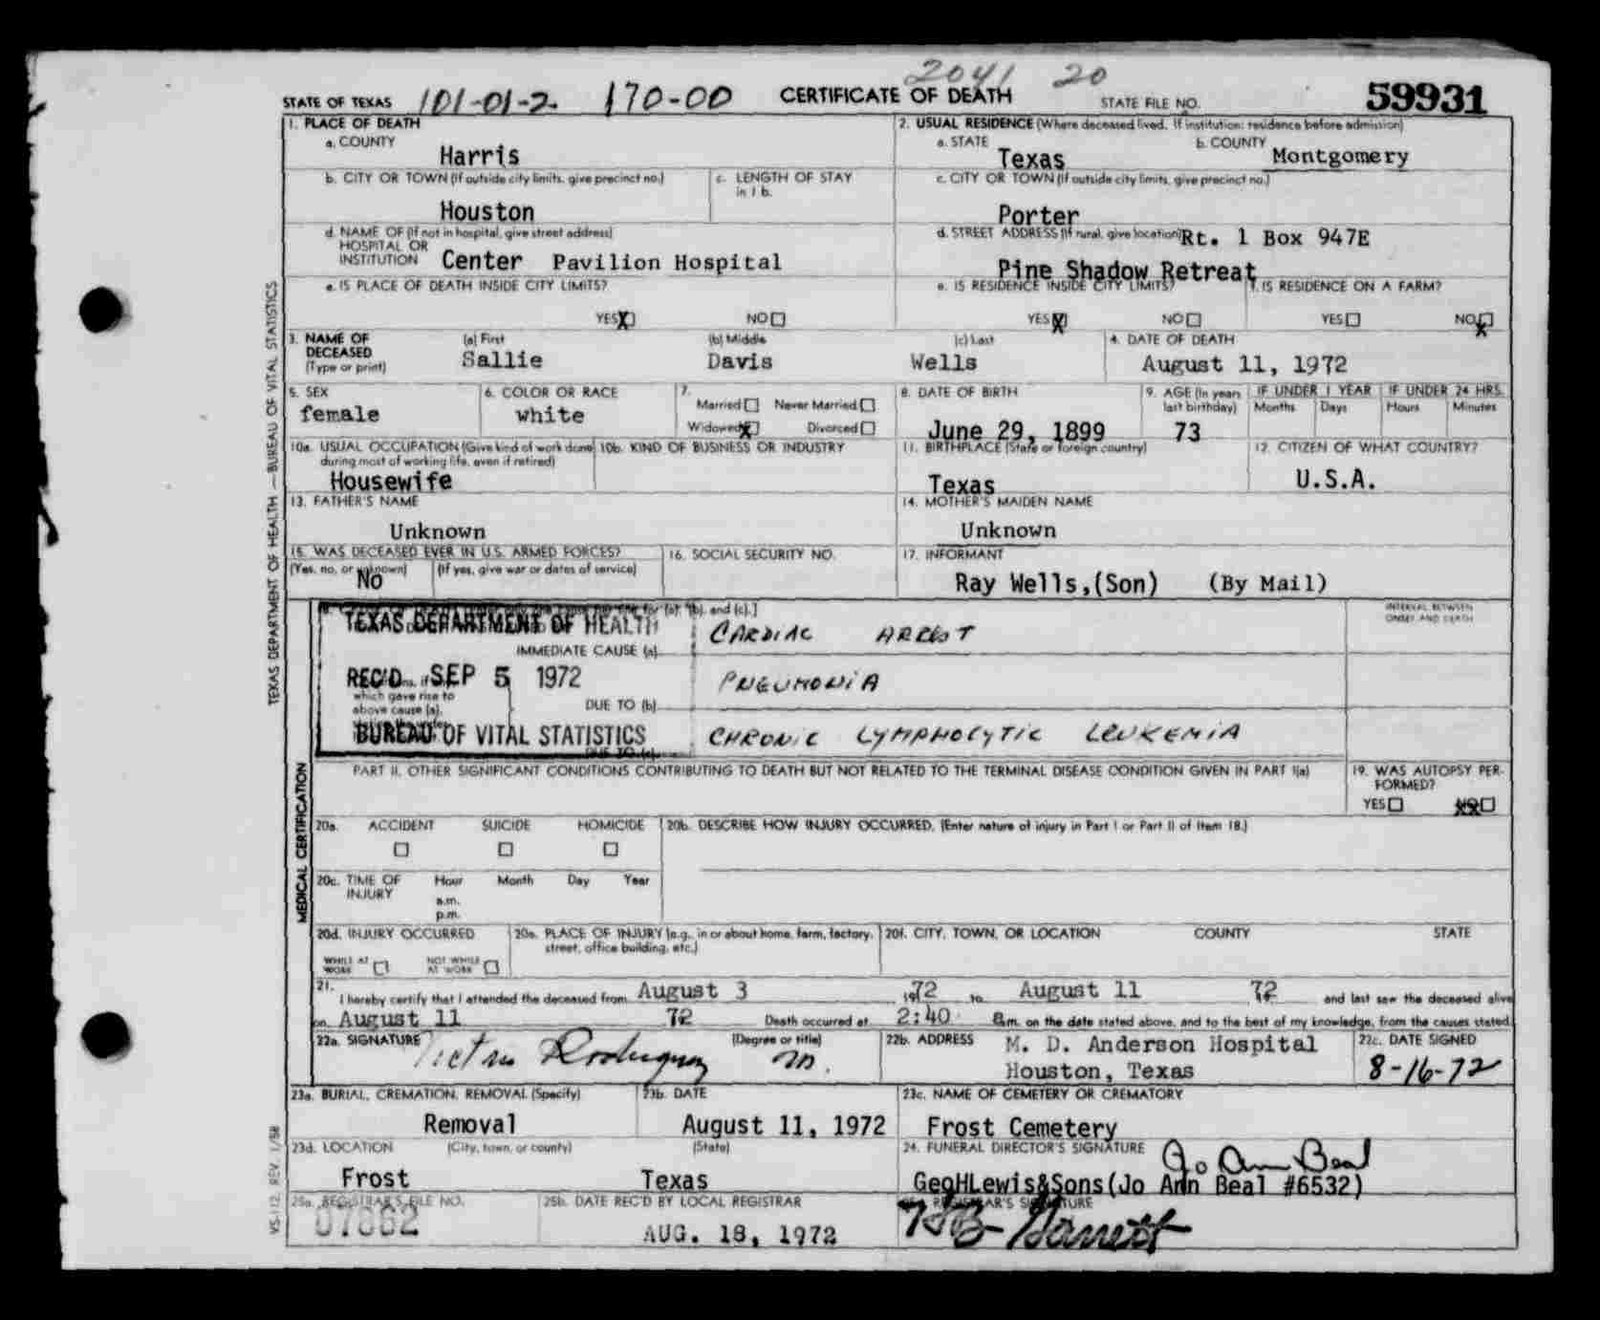 2041 20
STATE OF TEXAS 101-01-2 170-00 CERTIFICATE OF DEATH STATE FILE NO. 59931
1. PLACE OF DEATH
a. COUNTY
Harris
2. USUAL RESIDENCE (Where deceased lived. If institution: residence before admission)
a. STATE
Texas
b. COUNTY
Montgomery
b. CITY OR TOWN (If outside city limits, give precinct no.)
Houston
c. LENGTH OF STAY
in 1 b.
c. CITY OR TOWN (If outside city limits, give precinct no.)
Porter
d. NAME OF (If not in hospital, give street address)
HOSPITAL OR
INSTITUTION Center Pavilion Hospital
d. STREET ADDRESS (If rural, give location) Rt. 1 Box 947E
Pine Shadow Retreat
e. IS PLACE OF DEATH INSIDE CITY LIMITS?
YES X NO
e. IS RESIDENCE INSIDE CITY LIMITS?
YES X NO
f. IS RESIDENCE ON A FARM?
YES NO X
3. NAME OF
DECEASED
(Type or print)
(a) First
Sallie
(b) Middle
Davis
(c) Last
Wells
4. DATE OF DEATH
August 11, 1972
5. SEX
female
6. COLOR OR RACE
white
7.
Married Never Married
Widowed X Divorced
8. DATE OF BIRTH
June 29, 1899
9. AGE (In years
last birthday)
73
IF UNDER 1 YEAR
Months Days
IF UNDER 24 HRS.
Hours Minutes
10a. USUAL OCCUPATION (Give kind of work done
during most of working life, even if retired)
Housewife
10b. KIND OF BUSINESS OR INDUSTRY
11. BIRTHPLACE (State or foreign country)
Texas
12. CITIZEN OF WHAT COUNTRY?
U.S.A.
13. FATHER'S NAME
Unknown
14. MOTHER'S MAIDEN NAME
Unknown
15. WAS DECEASED EVER IN U.S. ARMED FORCES?
(Yes, no, or unknown) (If yes, give war or dates of service)
No
16. SOCIAL SECURITY NO.
17. INFORMANT
Ray Wells,(Son) (By Mail)
for (a), (b), and (c).]
TEXAS DEPARTMENT OF HEALTH
IMMEDIATE CAUSE (a) CARDIAC ARREST
INTERVAL BETWEEN
ONSET AND DEATH
REC'D SEP 5 1972
which gave rise to
above cause (a),
DUE TO (b) PNEUMONIA
BUREAU OF VITAL STATISTICS
DUE TO (c) CHRONIC LYMPHOCYTIC LEUKEMIA
PART II. OTHER SIGNIFICANT CONDITIONS CONTRIBUTING TO DEATH BUT NOT RELATED TO THE TERMINAL DISEASE CONDITION GIVEN IN PART I(a)
19. WAS AUTOPSY PER-
FORMED?
YES NO
20a. ACCIDENT SUICIDE HOMICIDE
20b. DESCRIBE HOW INJURY OCCURRED. (Enter nature of injury in Part I or Part II of Item 18.)
20c. TIME OF
INJURY
Hour Month Day Year
a.m.
p.m.
20d. INJURY OCCURRED
WHILE AT
WORK
NOT WHILE
AT WORK
20e. PLACE OF INJURY (e.g., in or about home, farm, factory,
street, office building, etc.)
20f. CITY, TOWN, OR LOCATION COUNTY STATE
21.
I hereby certify that I attended the deceased from August 3 1972 to August 11 72 and last saw the deceased alive
on August 11 72 Death occurred at 2:40 a.m. on the date stated above, and to the best of my knowledge, from the causes stated.
22a. SIGNATURE (Degree or title)
Victor Rodriguez
22b. ADDRESS M. D. Anderson Hospital
Houston, Texas
22c. DATE SIGNED
8-16-72
23a. BURIAL, CREMATION, REMOVAL (Specify)
Removal
23b. DATE
August 11, 1972
23c. NAME OF CEMETERY OR CREMATORY
Frost Cemetery
23d. LOCATION (City, town, or county) (State)
Frost Texas
24. FUNERAL DIRECTOR'S SIGNATURE Jo Ann Beal
GeoHLewis&Sons(Jo Ann Beal #6532)
25a. REGISTRAR'S FILE NO.
07862
25b. DATE REC'D BY LOCAL REGISTRAR
AUG. 18, 1972
REGISTRAR'S SIGNATURE
Garrett
TEXAS DEPARTMENT OF HEALTH — BUREAU OF VITAL STATISTICS
MEDICAL CERTIFICATION
VS-112 REV. 1/58